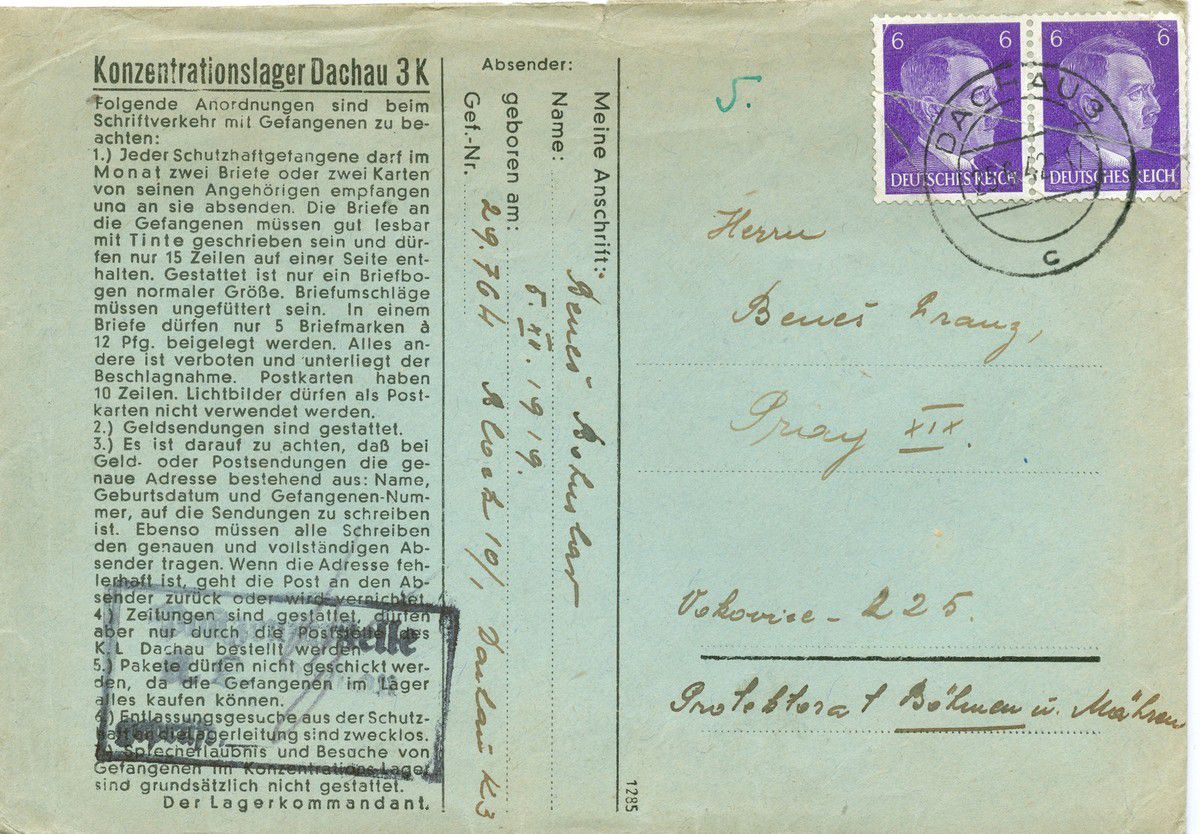 Konzentrationslager Dachau 3 K
Folgende Anordnungen sind beim
Schriftverkehr mit Gefangenen zu be-
achten:
1.) Jeder Schutzhaftgefangene darf im
Monat zwei Briefe oder zwei Karten
von seinen Angehörigen empfangen
und an sie absenden. Die Briefe an
die Gefangenen müssen gut lesbar
mit Tinte geschrieben sein und dür-
fen nur 15 Zeilen auf einer Seite ent-
halten. Gestattet ist nur ein Briefbo-
gen normaler Größe. Briefumschläge
müssen ungefüttert sein. In einem
Briefe dürfen nur 5 Briefmarken à
12 Pfg. beigelegt werden. Alles an-
dere ist verboten und unterliegt der
Beschlagnahme. Postkarten haben
10 Zeilen. Lichtbilder dürfen als Post-
karten nicht verwendet werden.
2.) Geldsendungen sind gestattet.
3.) Es ist darauf zu achten, daß bei
Geld- oder Postsendungen die ge-
naue Adresse bestehend aus: Name,
Geburtsdatum und Gefangenen-Num-
mer, auf die Sendungen zu schreiben
ist. Ebenso müssen alle Schreiben
den genauen und vollständigen Ab-
sender tragen. Wenn die Adresse feh-
lerhaft ist, geht die Post an den Ab-
sender zurück oder wird vernichtet.
4.) Zeitungen sind gestattet, dürfen
aber nur durch die Poststelle des
K. L. Dachau bestellt werden.
5.) Pakete dürfen nicht geschickt wer-
den, da die Gefangenen im Lager
alles kaufen können.
6.) Entlassungsgesuche aus der Schutz-
haft an die Lagerleitung sind zwecklos.
7.) Sprecherlaubnis und Besuche von
Gefangenen im Konzentrations-Lager
sind grundsätzlich nicht gestattet.
Der Lagerkommandant.
Absender:
Meine Anschrift:
Name: Beneš Bohuslav
geboren am: 5. XII. 1919.
Gef.-Nr. 29.764 Block 10/1 Dachau K3
1285
5.
6 6
DEUTSCHES REICH
6 6
DEUTSCHES REICH
DACHAU 3
c
Herrn
Beneš Franz,
Prag XIX.
Vokovice - 225.
Protektorat Böhmen u. Mähren